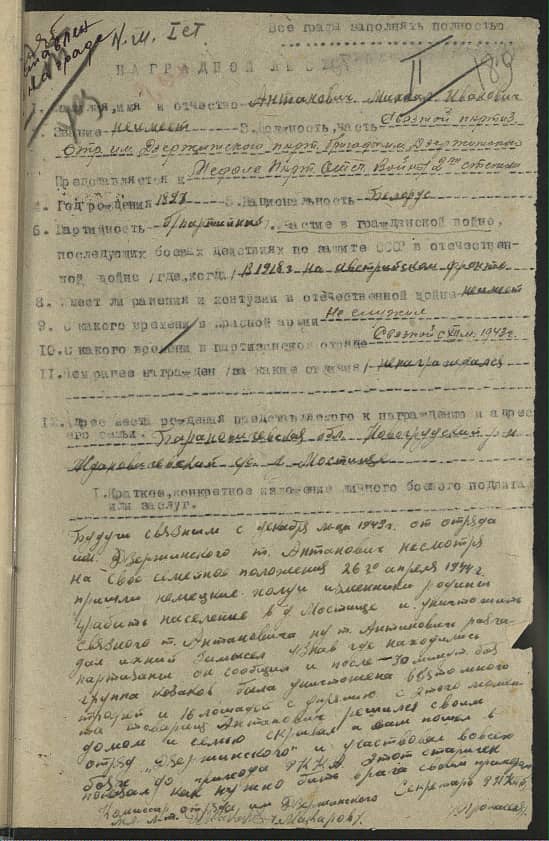 Все графы заполнять полностью
П.М. I ст
II 189
НАГРАДНОЙ ЛИСТ
1. Фамилия, имя и отчество Антанович Михаил Иванович
2. Звание неимеет 3. Должность, часть Связной партиз
отр им. Дзержинского парт. бригады им Дзержинского
Представляется к Медале Парт. Отеч. Войны 2ой степени
4. Год рождения 1897 5. Национальность Белорус
6. Партийность б/партийный 7. Участие в гражданской войне,
последующих боевых действиях по защите СССР и отечествен-
ной войне /где, когда/ В 1918 г на австрийском фронте
8. Имеет ли ранения и контузии в отечественной войне неимеет
9. С какого времени в красной армии Не служил
10. С какого времени в партизанском отряде Связной с XII м. 1943 г.
11. Чем ранее награжден /за какие отличия/ ненаграждался
12. Адрес места рождения представляемого к награждению и адрес
его семьи Барановичская обл. Новогрудский р-н
с/с д. Мостище
I. Краткое, конкретное изложение личного боевого подвига
или заслуг.
Будучи связным с декабря м-ца 1943 г. от отряда
им. Дзержинского т. Антанович несмотря
на свое семейное положения 26го апреля 1944 г.
пришли немецкие изменники родины
грабить население в д. Мостище и уничтожать
связного т. Антановича ну т. Антанович разга-
дал ихний замысел узнав где находились
партизаны он сообщил и после - 30 минут. боя
группа казаков была уничтожена
и 16 лошадей с с этого момен
та товарищ Антанович решился своим
домом и семью скрывал а сам пошел в
отряд „Дзержинского" и участвовал во всех
боях до прихода РККА. Этот старичек
показал как нужно бить врага своим примером
Комиссар отряда им Дзержинского Секретарь
мл. л-т. /Макаров/.